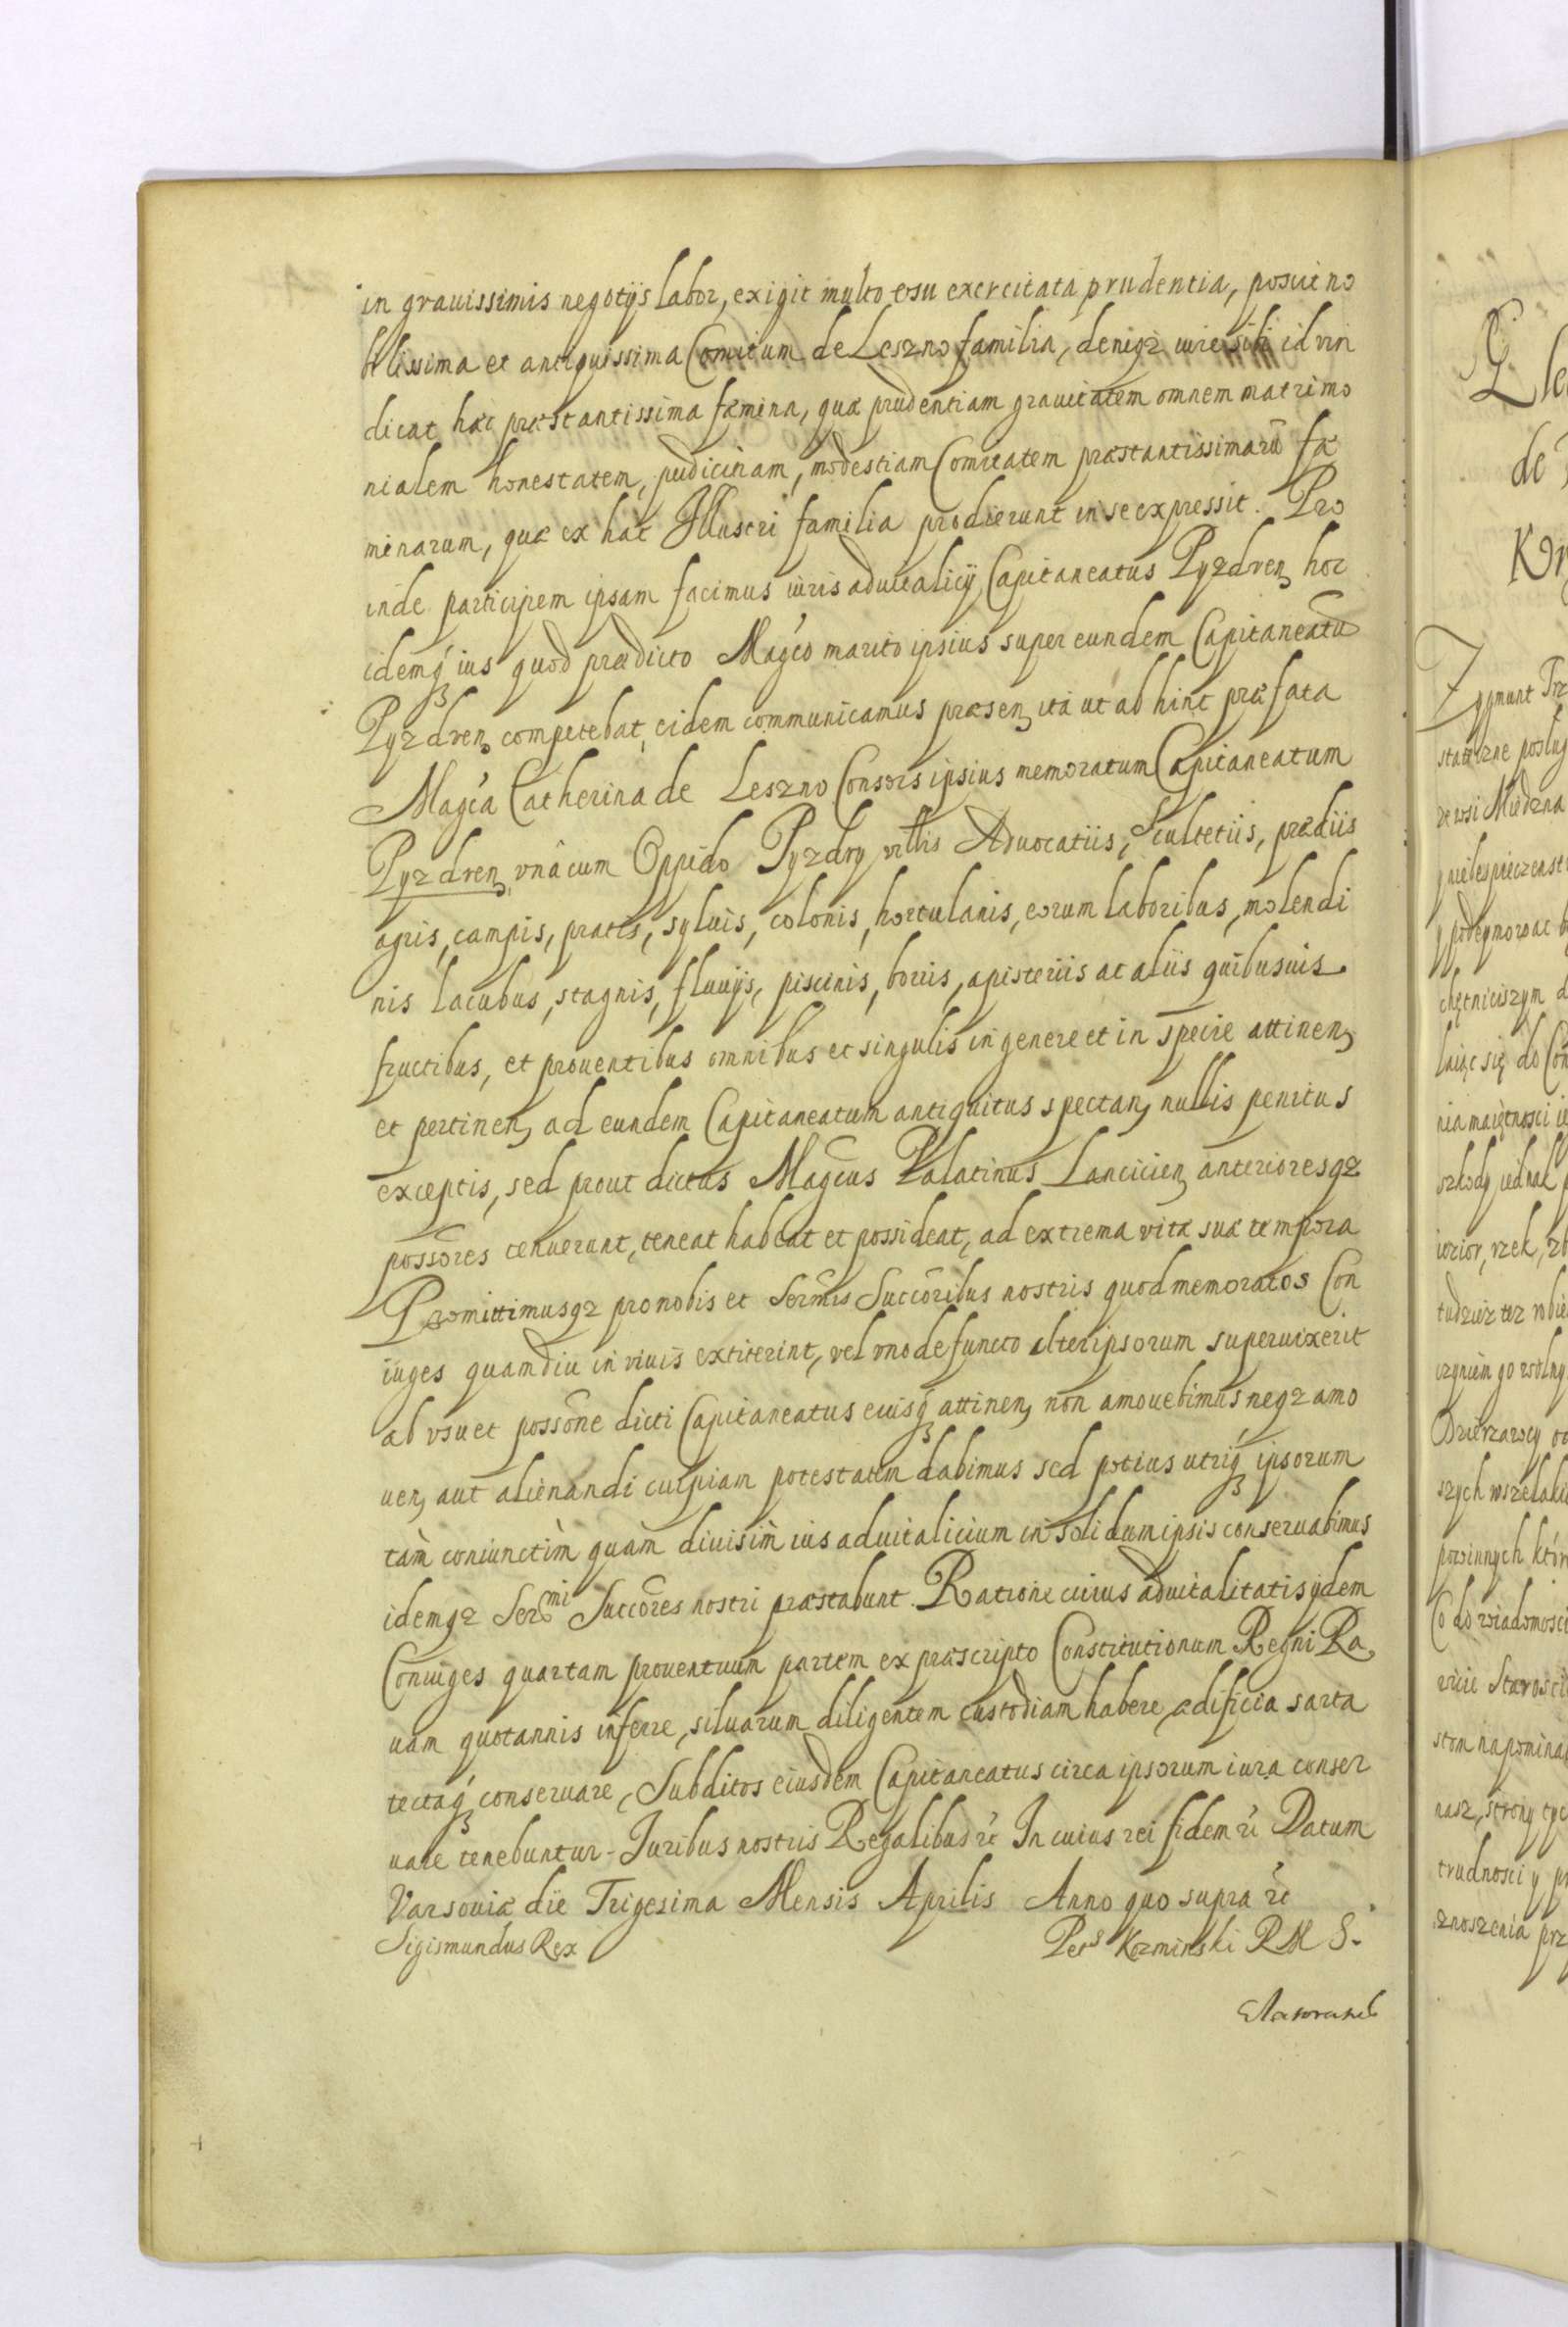 in grauissimis negotijs labor, exigit multo usu exercitata prudentia, poscit no
bilissima et antiquissima Comitum de Leszno familia, deniqз iure sibi id vin
dicat hæc præstantissima fæmina, quæ prudentiam grauitatem omnem matrimo
nialem honestatem, pudicitiam, modestiam Comitatem præstantissimarū fæ
minarum, quæ ex hac Illustri familia prodierunt in se expressit. Pro
inde participem ipsam facimus iuris aduitalicij Capitaneatus Pyzdren, hoc
idemqꝫ ius quod prædicto Magco marito ipsius super eundem Capitaneatū
Pyzdren, competebat, eidem communicamus præsen, ita ut ab hinc præfata
Magca Catherina de Leszno Consors ipsius memoratum Capitaneatum
Pyzdren, vnâcum Oppido Pyzdry villis Aduocatiis, Scultetiis, prædiis
agris, campis, pratis, syluis, colonis, hortulanis, eorum laboribus, molendi
nis lacubus, stagnis, fluuijs, piscinis, boris, apisteriis ac aliis quibusuis
fructibus, et prouentibus omnibus et singulis in genere et in specie attinen,
et pertinen, ad eundem Capitaneatum antiquitus spectan, nullis penitus
exceptis, sed prout dictus Magcus Palatinus Lancicien, anterioresqз
possores tenuerunt, teneat habeat et possideat, ad extrema vitæ suæ tempora
Promittimusqз pro nobis et Sermis Succoribus nostris quod memoratos Con
iuges quamdiu in viuis extiterint, vel vno defuncto alter ipsorum superuixerit
ab vsu et possone dicti Capitaneatus eiusqꝫ attinen, non amouebimus neqз amo
uen, aut alienandi cuipiam potestatem dabimus sed potius utriqꝫ ipsorum
tàm coniunctìm quàm diuisìm ius aduitalicium in solidum ipsis conseruabimus
idemqз Sermi Succores nostri præstabunt. Ratione cuius aduitalitatis ijdem
Coniuges quartam prouentuum partem ex præscripto Constitutionum Regni Ra
uam quotannis inferre, siluarum diligentem custodiam habere, ædificia sarta
tectaqꝫ conseruare, Subditos eiusdem Capitaneatus circa ipsorum iura conser
uare tenebuntur. Iuribus nostris Regalibus rc In cuius rei fidem rc Datum
Varsouiæ die Trigesima Mensis Aprilis Anno quo supra rc
Sigismundus Rex
Pets Kozminski R M S.